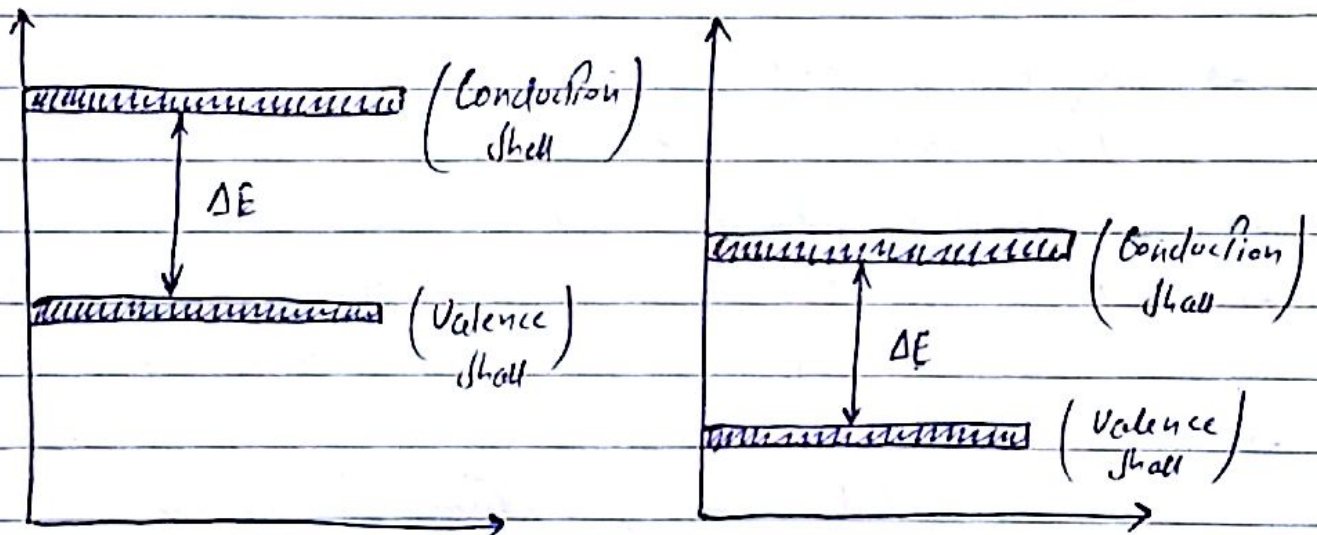 (Conduction
shell)
ΔE
(Valence
shall)
(Conduction
shall)
ΔE
(Valence
shall)